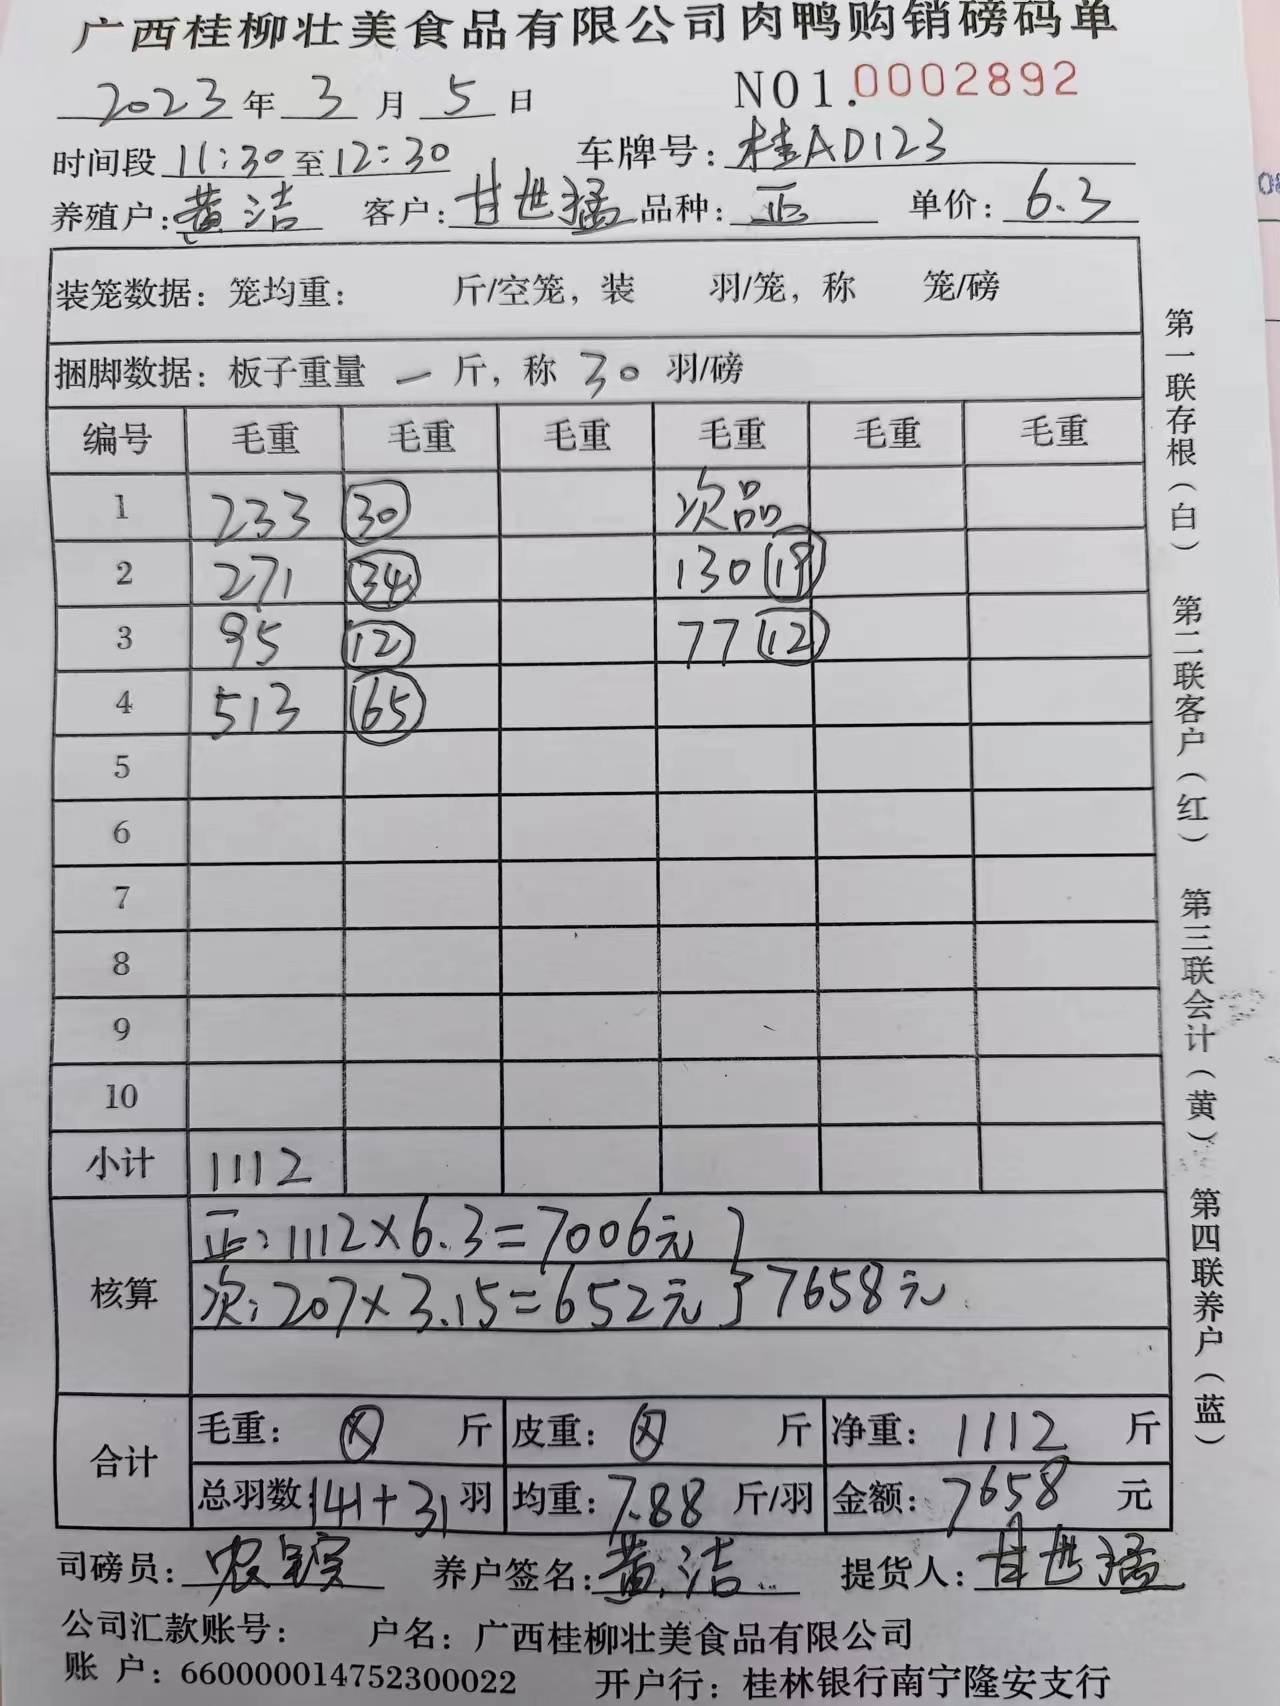 广西桂柳壮美食品有限公司肉鸭购销磅码单
2023年 3月 5日 NO1.0002892
时间段 11:30至12:30 车牌号:桂AD123
养殖户:黄洁 客户:甘世猛 品种:正 单价:6.3
装笼数据:笼均重: 斤/空笼,装 羽/笼,称 笼/磅
捆脚数据:板子重量 一 斤,称 30 羽/磅
编号 毛重 毛重 毛重 毛重 毛重 毛重
1 233 30 次品
2 271 34 130 19
3 95 12 77 12
4 513 65
5
6
7
8
9
10
小计 1112
核算 正:1112×6.3=7006元
次:207×3.15=652元 } 7658元
合计 毛重: 斤 皮重: 斤 净重: 1112 斤
总羽数:141+31羽 均重:7.88 斤/羽 金额:7658 元
司磅员: 养户签名:黄洁 提货人:甘世猛
公司汇款账号: 户名:广西桂柳壮美食品有限公司
账 户:660000014752300022 开户行:桂林银行南宁隆安支行
第一联存根(白) 第二联客户(红) 第三联会计(黄) 第四联养户(蓝)